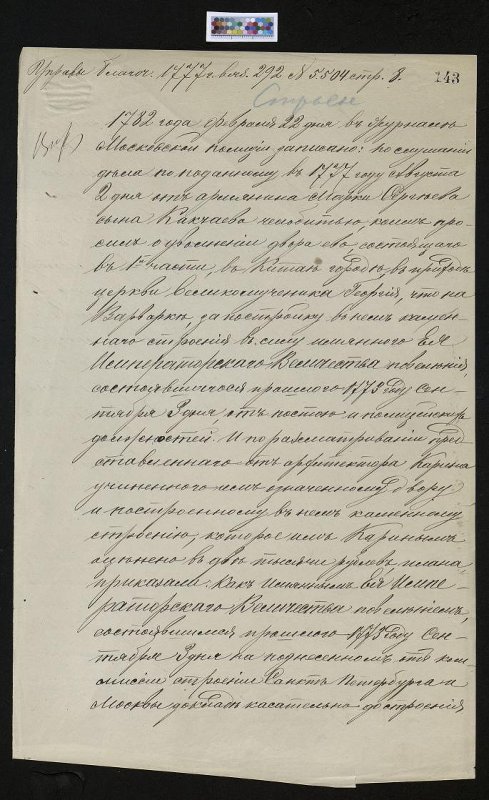 Управы Благоч: 1777 г. вяз. 292 № 5504 стр. 8.
143
Строен
1782 года февраля 22 дня въ журналѣ
Московской Полиціи записано: по слушаніи
дѣла по поданному въ 1777 году Августа
2 дня отъ армянина Марки Сергѣева
сына Какчаева челобитью, коимъ про-
силъ о увольненіи двора ево, состоящаго
въ 1й части, въ Китаѣ городѣ, въ приходѣ
церкви Великомученика Георгія, что на
Варваркѣ, за постройку въ немъ камен-
наго строенія въ силу имяннаго Ея
Императорскаго Величества повелѣнія
состоявшагося прошлого 1773 году Сен-
тября 3 дня, отъ постою и полицейскихъ
должностей. И по разсматриваніи пред-
ставленнаго отъ архитектора Карина
учиненного имъ означенному двору
и построенному въ немъ каменному
строенію, которое имъ Каринымъ
оцѣнено въ двѣ тысячи рублевъ, плана,
приказали: Какъ имяннымъ Ея Импе-
раторскаго Величества повелѣніемъ,
состоявшимся прошлого 1773 году Сен-
тября 3 дня на поднесенномъ отъ ком
миссіи строеніи Санктъ Петербурга и
Москвы докладѣ касательно до строенія